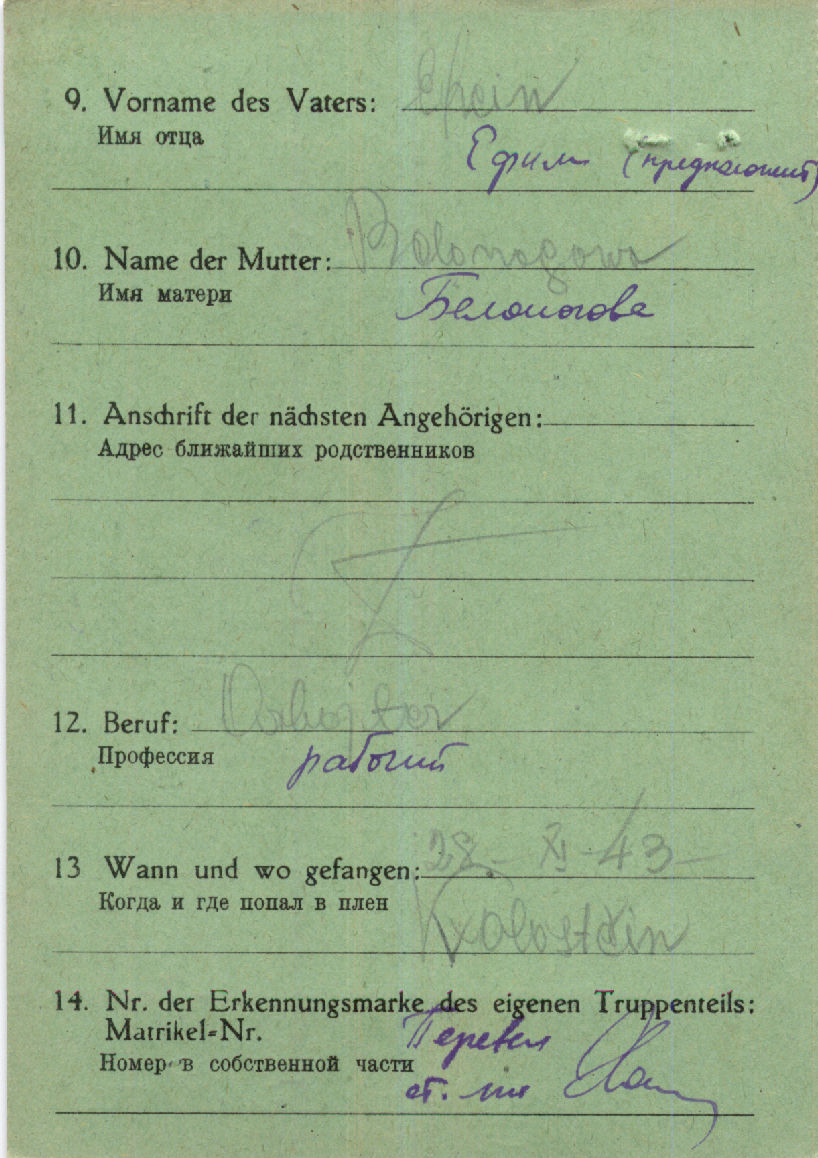 9. Vorname des Vaters: Efein
Имя отца
Ефим (предположит)
10. Name der Mutter: Belonogowa
Имя матери
Белоногова
11. Anschrift der nächsten Angehörigen:
Адрес ближайших родственников
12. Beruf:
Профессия рабочий
13 Wann und wo gefangen: 28. XI - 43 -
Когда и где попал в плен
14. Nr. der Erkennungsmarke des eigenen Truppenteils:
Matrikel-Nr. Перевел
Номер в собственной части ст.